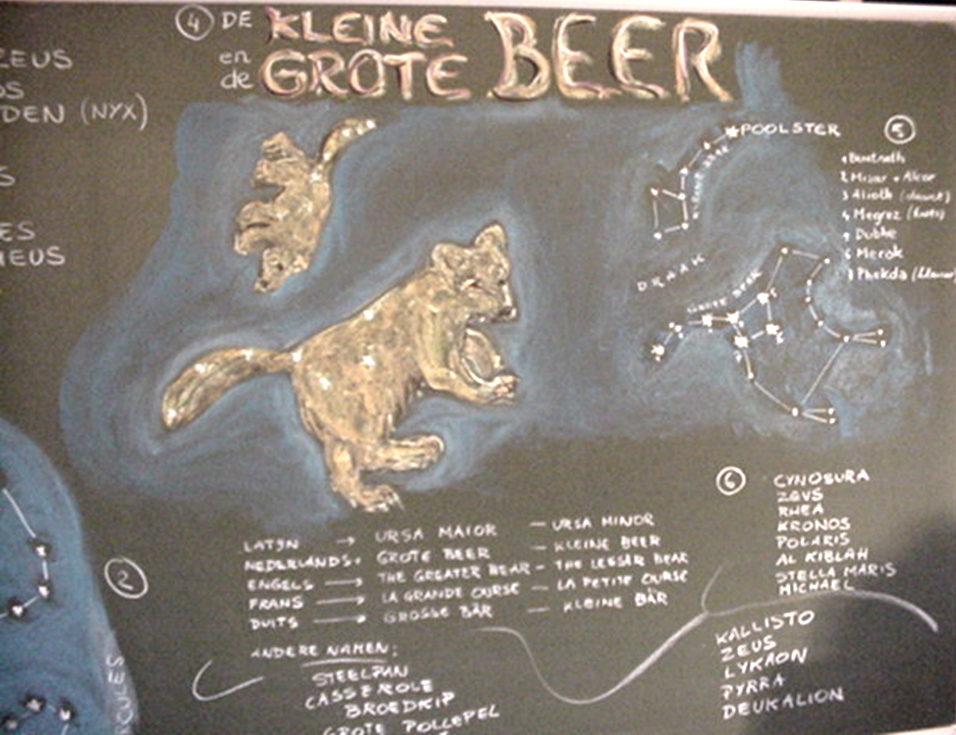 ZEUS
DEN (NYX)
④ DE KLEINE
en de GROTE BEER
POOLSTER
KLEINE BEER
DRAAK
GROTE BEER
⑤
1 Benetnash
2 Mizar + Alcor
3 Alioth (staart)
4 Megrez
5 Dubhe
6 Merak
7 Phekda
②
LATIJN → URSA MAIOR — URSA MINOR
NEDERLANDS → GROTE BEER — KLEINE BEER
ENGELS → THE GREATER BEAR — THE LESSAR BEAR
FRANS → LA GRANDE OURSE — LA PETITE OURSE
DUITS → GROSSE BÄR — KLEINE BÄR
ANDERE NAMEN:
STEELPAN
CASSEROLE
BROEDKIP
GROTE POLLEPEL
⑥
CYNOSURA
ZEUS
RHEA
KRONOS
POLARIS
AL KIBLAH
STELLA MARIS
MICHAEL
KALLISTO
ZEUS
LYKAON
PYRRA
DEUKALION